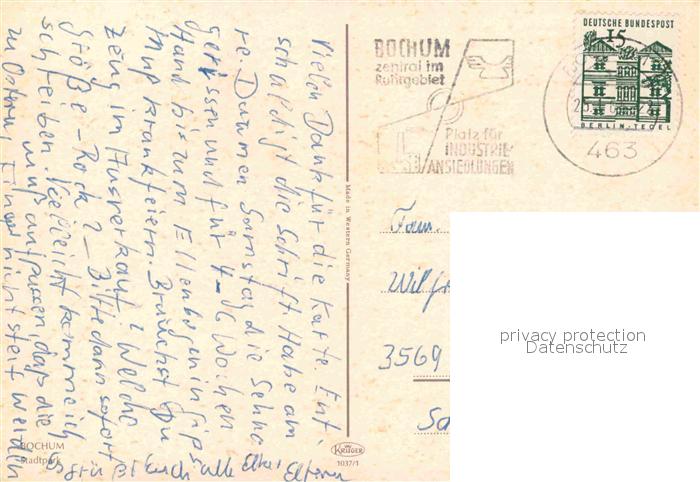 Vielen Dank für die Karte. Ent-
schuldigt die Schrift. Habe am
re. Daumen Samstag die Sehne
gerissen und für 4-6 Wochen
Hand bis zum Ellenbogen in Gips
Muß krankfeiern. Brauchst Du
Zeug im Ausverkauf? Welche
Größe - Rock? - Bitte dann sofort
schreiben. Vielleicht komme ich
zu Ostern, muß aufpassen, daß die
Finger nicht steif werden
Es grüßt Euch alle Elke Eltern
BOCHUM
Stadtpark
Made in Western Germany
KRÜGER
1037/1
BOCHUM
zentral im
Ruhrgebiet
Platz für
INDUSTRIE-
ANSIEDLUNGEN
DEUTSCHE BUNDESPOST
15
BERLIN-TEGEL
463
Fam.
Wilf
3569
privacy protection
Datenschutz